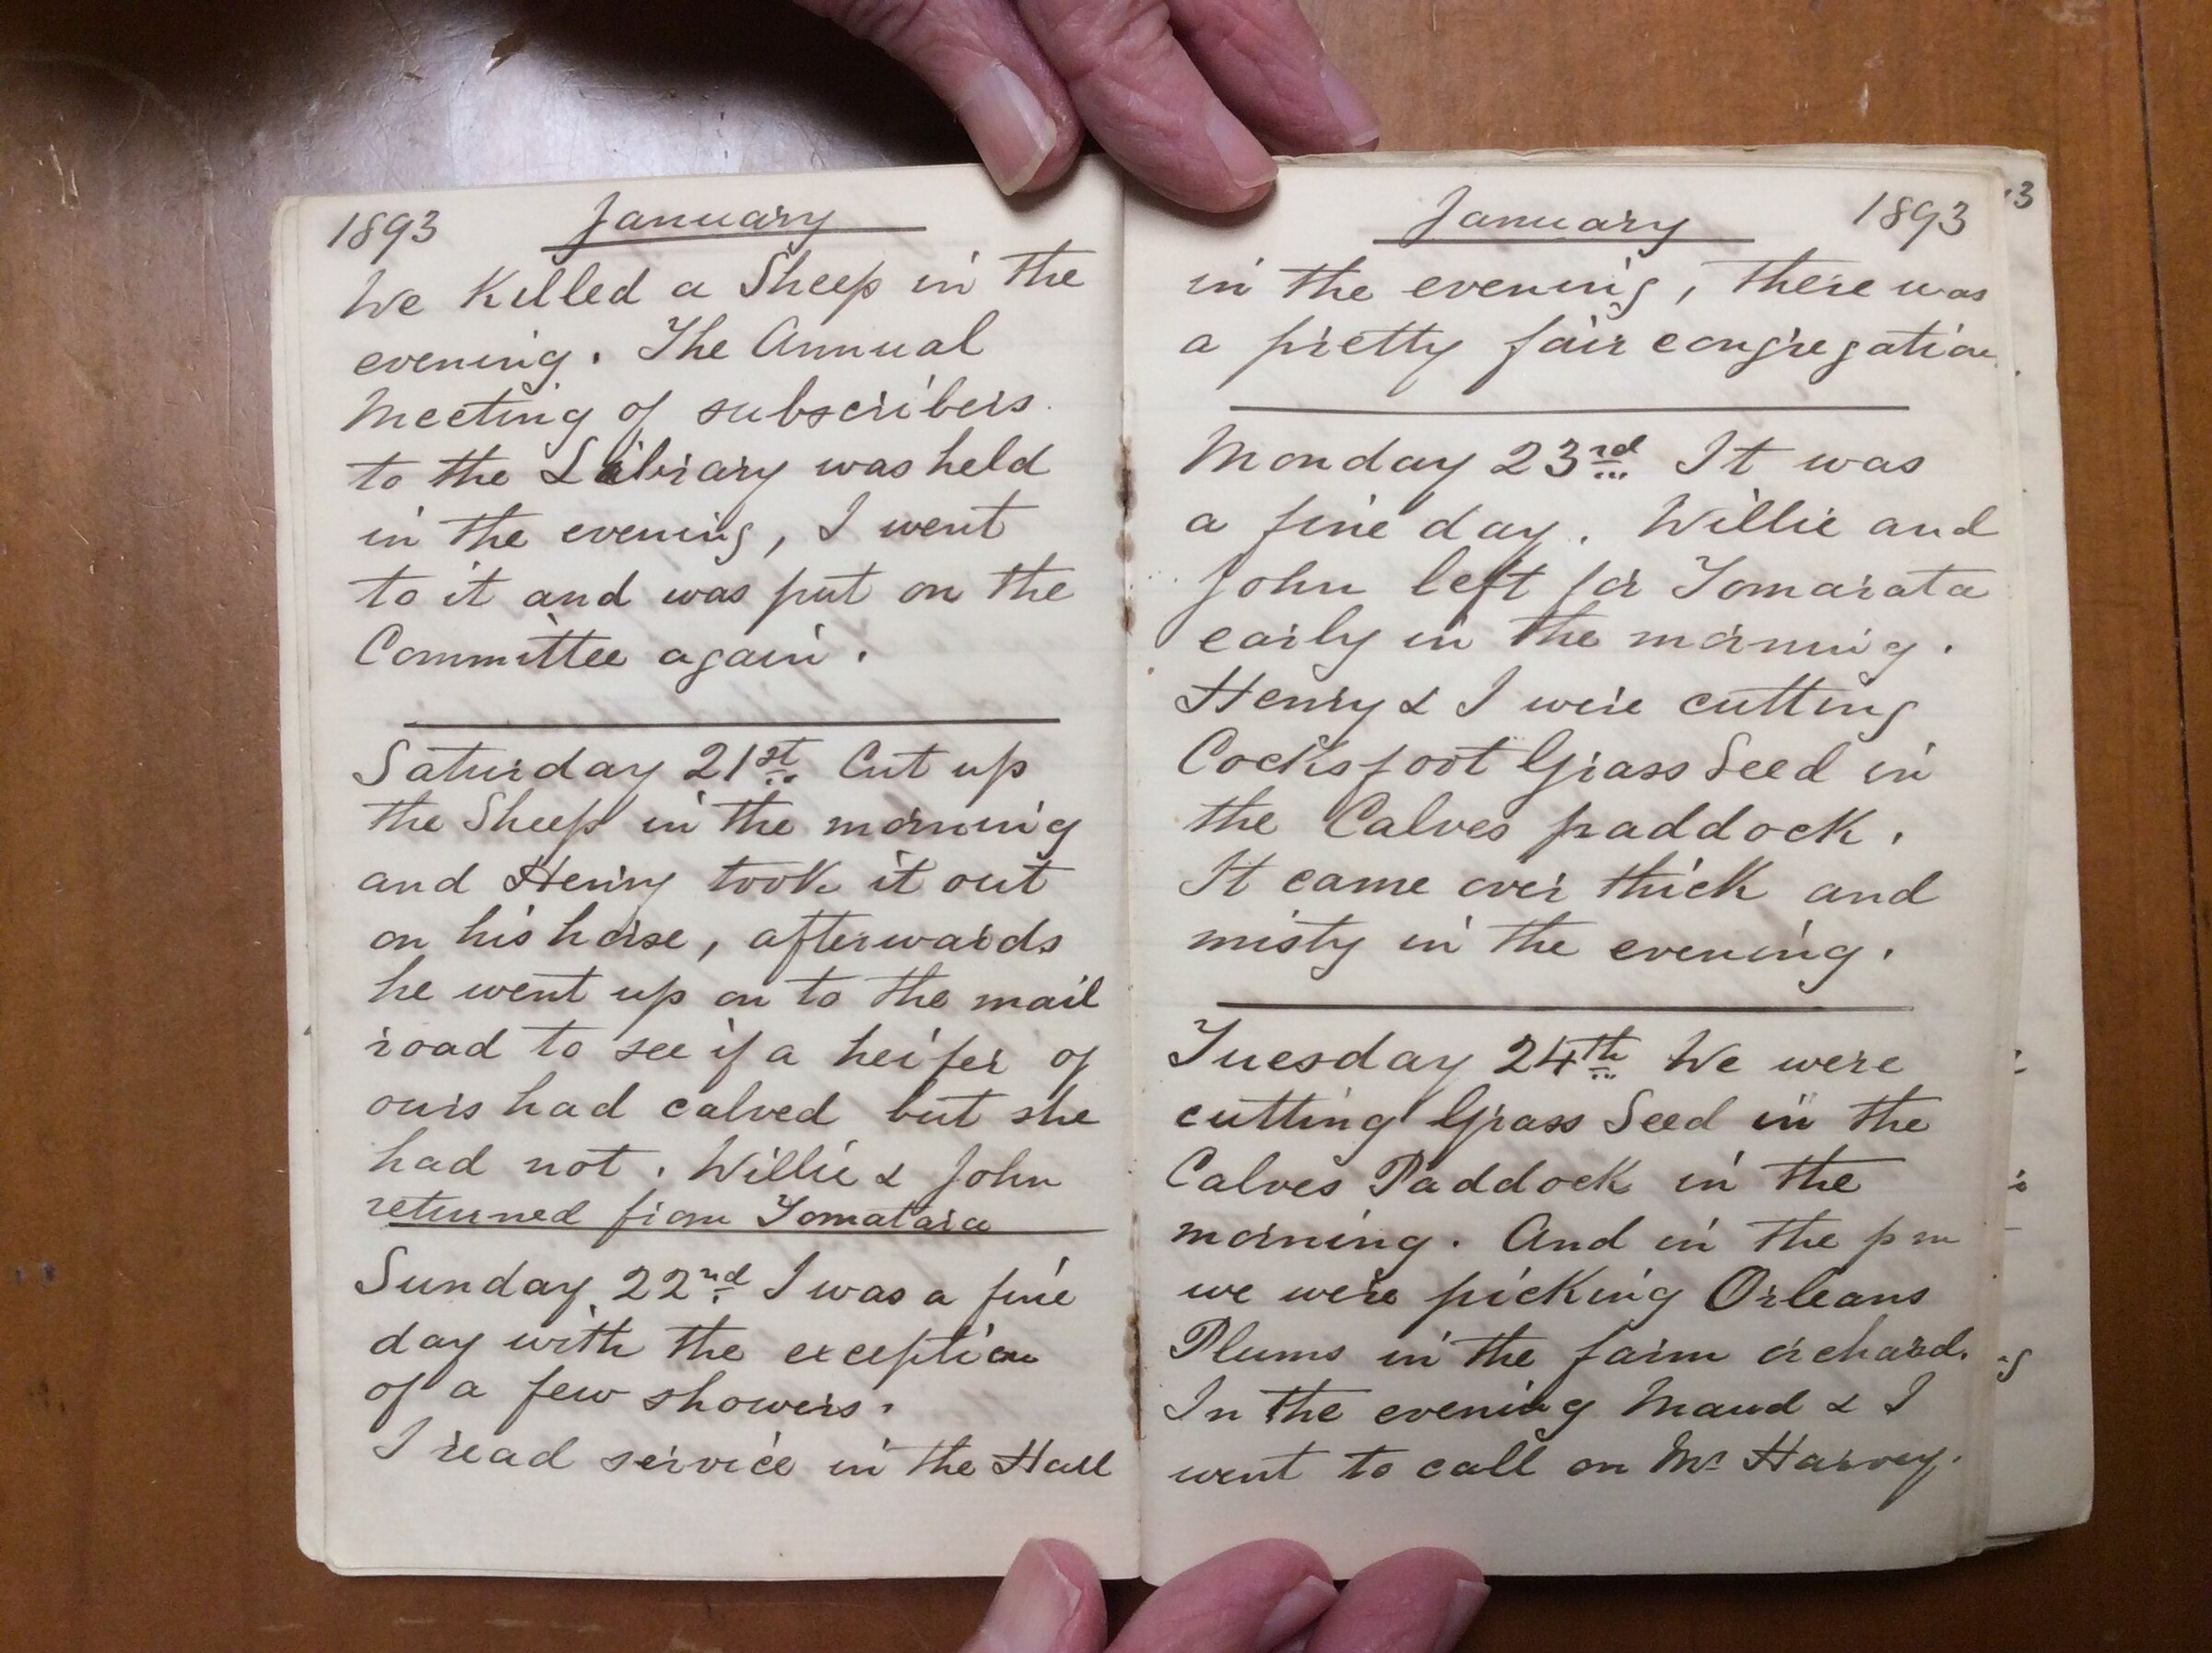 1893 January
We Killed a Sheep in the
evening. The Annual
Meeting of subscribers
to the Library was held
in the evening, I went
to it and was put on the
Committee again.
Saturday 21st Cut up
the Sheep in the morning
and Henry took it out
on his horse, afterwards
he went up on to the mail
road to see if a heifer of
ours had calved but she
had not. Willie & John
returned from Tomatara
Sunday 22nd I was a fine
day with the exception
of a few showers.
I read service in the Hall
January 1893
in the evening, there was
a pretty fair congregation.
Monday 23rd It was
a fine day. Willie and
John left for Tomarata
early in the morning.
Henry & I were cutting
Cocksfoot Grass Seed in
the Calves paddock.
It came over thick and
misty in the evening.
Tuesday 24th We were
cutting Grass Seed in the
Calves Paddock in the
morning. And in the pm
we were picking Orleans
Plums in the farm orchard.
In the evening Maud & I
went to call on Mr Harvey.
3